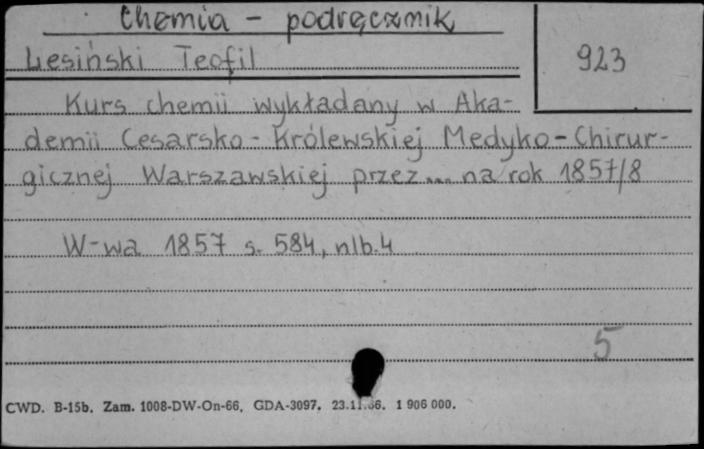 Chemia - podręcznik
Lesiński Teofil
923
Kurs chemii wykładany w Aka-
demii Cesarsko-Królewskiej Medyko-Chirur-
gicznej Warszawskiej przez... na rok 1857/8
W-wa 1857 s. 584, nlb. 4
5
CWD. B-15b. Zam. 1008-DW-On-66. GDA-3097. 23.11.66. 1 906 000.